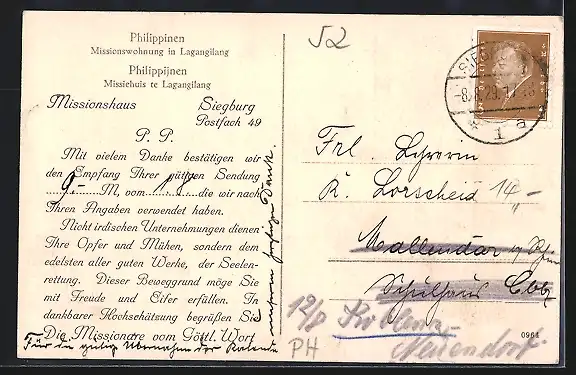 Philippinen
Missionswohnung in Lagangilang
Philippijnen
Missiehuis te Lagangilang
Missionshaus Siegburg
Postfach 49
P. P.
Mit vielem Danke bestätigen wir
den Empfang Ihrer gütigen Sendung
9.- M, vom die wir nach
Ihren Angaben verwendet haben.
Nicht irdischen Unternehmungen dienen
Ihre Opfer und Mühen, sondern dem
edelsten aller guten Werke, der Seelen-
rettung. Dieser Beweggrund möge Sie
mit Freude und Eifer erfüllen. In
dankbarer Hochschätzung begrüßen Sie
Die Missionare vom Göttl. Wort
Für die gütige Übernahme der Kalender
Dank.
52
Frl. Lehrerin
K. Lorscheid
14,-
Mallendar a/ Rhein
Schulhaus Cobl
12/8 Koblenz-
Neuendorf
PH
0961